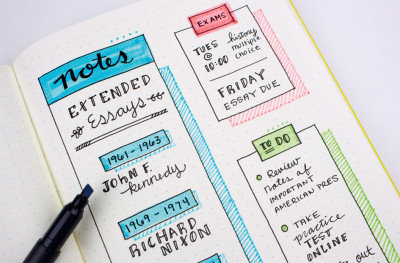 Notes
EXTENDED
Essays
1961-1963
JOHN F.
kennedy
1969-1974
RICHARD
NIXON
EXAMS
TUES history
@ multiple
10:00 choice
FRIDAY
ESSAY DUE
TO DO
Review
NOTES OF
IMPORTANT
AMERICAN PRES
TAKE
practice
TEST
ONLINE
out